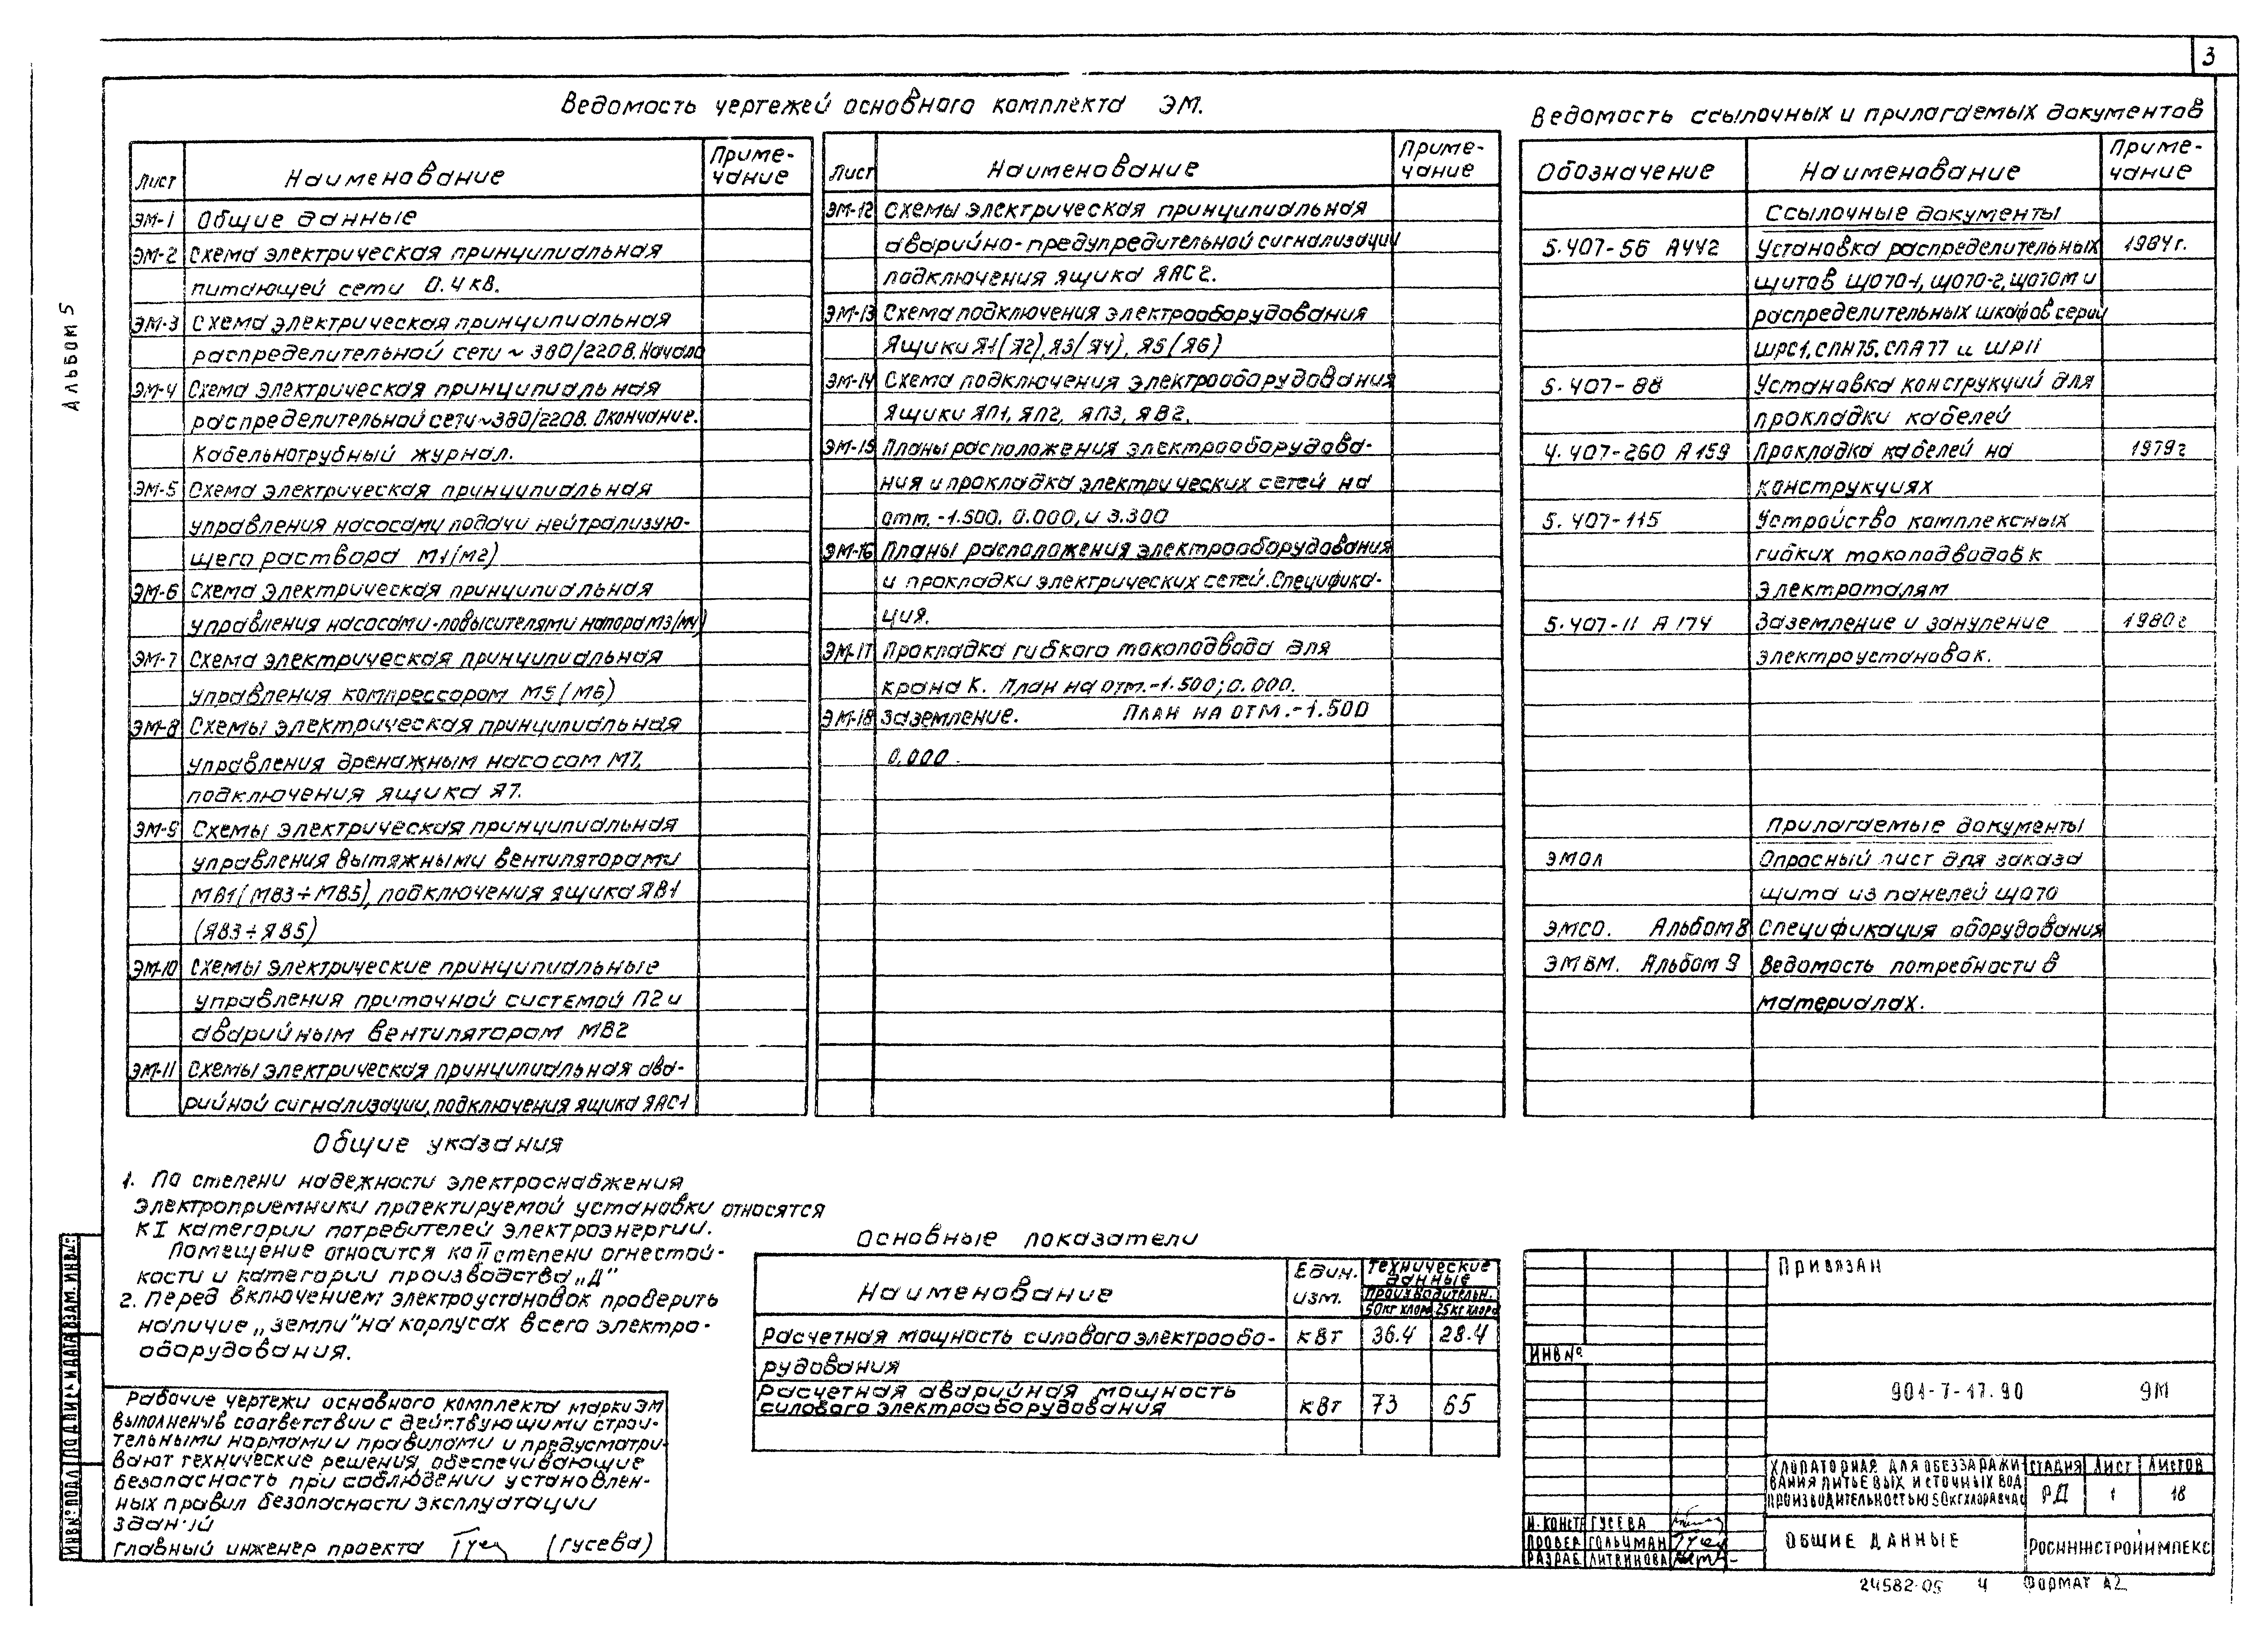 3
Альбом 5
Ведомость чертежей основного комплекта ЭМ.
Лист Наименование Приме-
чание
ЭМ-1 Общие данные
ЭМ-2 Схема электрическая принципиальная
питающей сети 0.4 кВ.
ЭМ-3 Схема электрическая принципиальная
распределительной сети ~ 380/220В. Начало
ЭМ-4 Схема электрическая принципиальная
распределительной сети ~380/220В. Окончание.
Кабельнотрубный журнал.
ЭМ-5 Схема электрическая принципиальная
управления насосами подачи нейтрализую-
щего раствора М1(М2)
ЭМ-6 Схема электрическая принципиальная
управления насосами-повысителями напора М3/М4)
ЭМ-7 Схема электрическая принципиальная
управления компрессором М5(М6)
ЭМ-8 Схемы электрическая принципиальная
управления дренажным насосом М7,
подключения ящика Я7.
ЭМ-9 Схемы электрическая принципиальная
управления вытяжными вентиляторами
МВ1(МВ3÷МВ5), подключения ящика ЯВ1
(ЯВ3÷ЯВ5)
ЭМ-10 Схемы электрические принципиальные
управления приточной системой П2 и
аварийным вентилятором МВ2
ЭМ-11 Схемы электрическая принципиальная ава-
рийной сигнализации, подключения ящика ЯАС1
Лист Наименование Приме-
чание
ЭМ-12 Схемы электрическая принципиальная
аварийно-предупредительной сигнализации
подключения ящика ЯАС2.
ЭМ-13 Схема подключения электрооборудования
Ящики Я1(Я2), Я3/Я4), Я5/Я6)
ЭМ-14 Схема подключения электрооборудования
Ящики ЯП1, ЯП2, ЯП3, ЯВ2.
ЭМ-15 Планы расположения электрооборудова-
ния и прокладка электрических сетей на
отм. -1.500. 0.000, и 3.300
ЭМ-16 Планы расположения электрооборудования
и прокладки электрических сетей. Специфика-
ция.
ЭМ-17 Прокладка гибкого токоподвода для
крана К. План на отм.-1.500; 0.000.
ЭМ-18 Заземление. План на отм.-1.500
0.000.
Ведомость ссылочных и прилагаемых документов
Обозначение Наименование Приме-
чание
Ссылочные документы
5.407-56 А442 Установка распределительных 1984г.
щитов ЩО70-1, ЩО70-2, ЩО70М и
распределительных шкафов серий
ШРС1, СПН75, СПА77 и ШР11
5.407-88 Установка конструкций для
прокладки кабелей
4.407-260 А159 Прокладка кабелей на 1979г
конструкциях
5.407-115 Устройство комплексных
гибких токоподводов к
электроталям
5.407-11 А174 Заземление и зануление 1980г
электроустановок.
Прилагаемые документы
ЭМОЛ Опросный лист для заказа
щита из панелей ЩО70
ЭМСО. Альбом 8 Спецификация оборудования
ЭМВМ. Альбом 9 Ведомость потребности в
материалах.
Общие указания
1. По степени надежности электроснабжения
электроприемники проектируемой установки относятся
к I категории потребителей электроэнергии.
Помещение относится ко II степени огнестой-
кости и категории производства „Д"
2. Перед включением электроустановок проверить
наличие „земли" на корпусах всего электро-
оборудования.
Рабочие чертежи основного комплекта марки ЭМ
выполнены в соответствии с действующими строи-
тельными нормами и правилами и предусматри-
вают технические решения, обеспечивающие
безопасность при соблюдении установлен-
ных правил безопасности эксплуатации
зданий
Главный инженер проекта (Гусева)
Основные показатели
Наименование Един. изм. Технические данные
Производительн.
50кг хлора 25кг хлора
Расчетная мощность силового электрообо- кВт 36.4 28.4
рудования
Расчетная аварийная мощность
силового электрооборудования кВт 73 65
Привязан
ИНВ №
901-7-17.90 ЭМ
Хлораторная для обеззаражи
вания питьевых и сточных вод
производительностью 50кг хлора в час
Стадия Лист Листов
РД 1 18
Н. контр Гусева
Провер Гольцман
Разраб Литвинова
Общие данные
Росинжстройимпекс
24582-05 4 Формат А2
ИНВ № подл Подпись и дата Взам. инв №